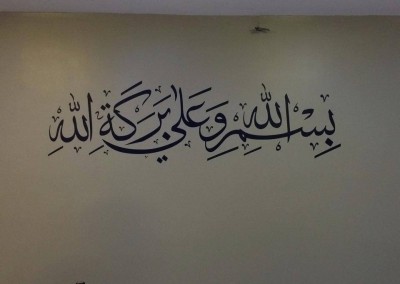 بِسْمِ اللهِ وَعَلَى بَرَكَةِ اللهِ